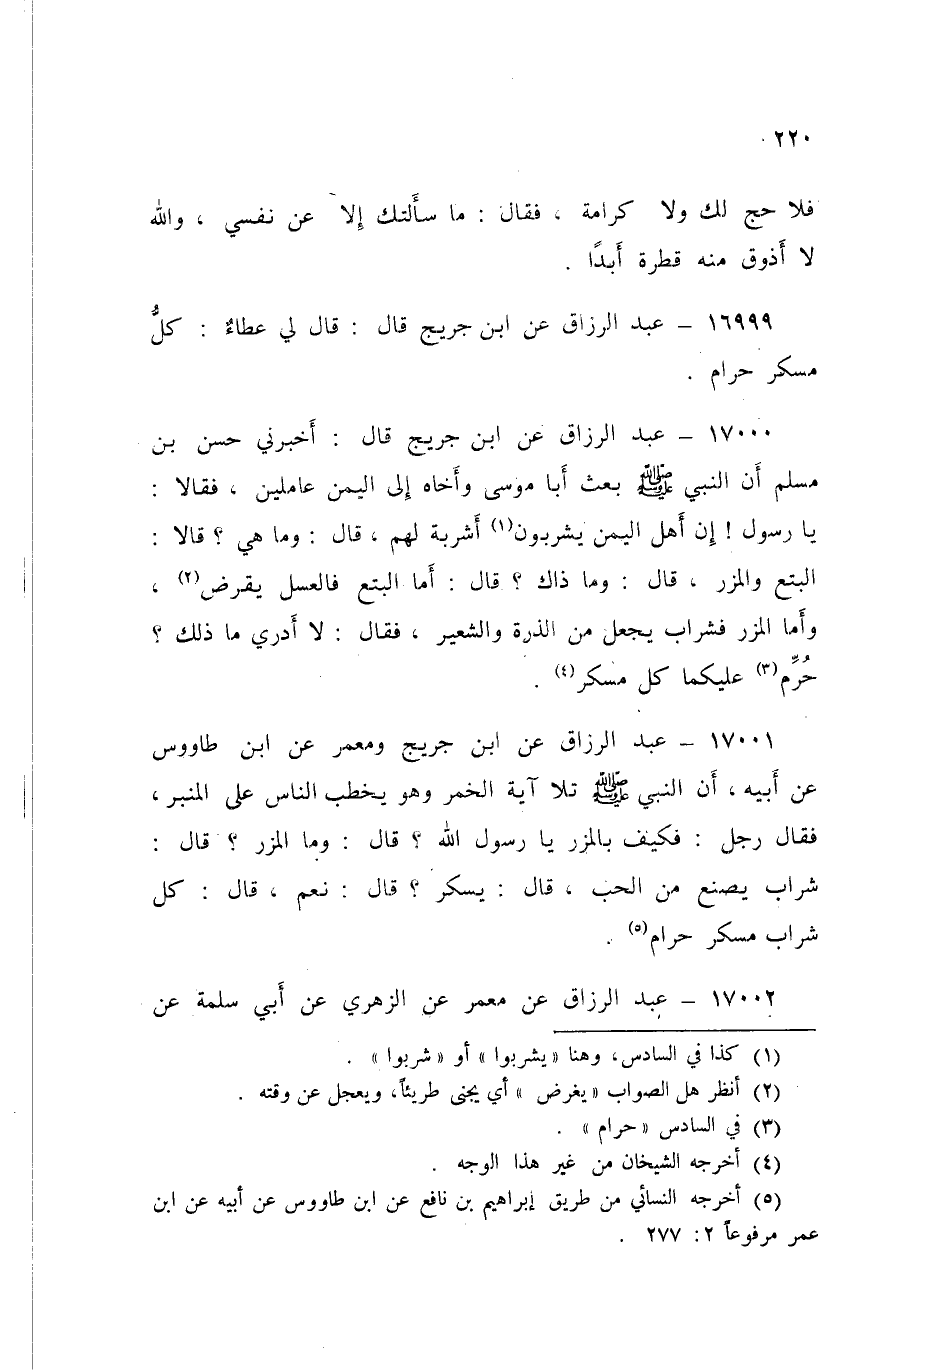 ٢٢٠
فلا حج لك ولا كرامة ، فقال : ما سأَلتك إِلا عن نفسي ، والله
لا أَذوق منه قطرة أَبدًا .
١٦٩٩٩ – عبد الرزاق عن ابن جريج قال : قال لي عطاءٌ : كلُّ
مسكر حرام .
١٧٠٠٠ – عبد الرزاق عن ابن جريج قال : أَخبرني حسن بن
مسلم أَن النبي ﷺ بعث أَبا موسى وأَخاه إِلى اليمن عاملين ، فقالا :
يا رسول ! إِن أَهل اليمن يشربون(١) أَشربة لهم ، قال : وما هي ؟ قالا :
البتع والمزر ، قال : وما ذاك ؟ قال : أَما البتع فالعسل يقرض(٢) ،
وأَما المزر فشراب يجعل من الذرة والشعير ، فقال : لا أَدري ما ذلك ؟
حُرِّم(٣) عليكما كل مسكر(٤) .
١٧٠٠١ – عبد الرزاق عن ابن جريج ومعمر عن ابن طاووس
عن أَبيه ، أَن النبي ﷺ تلا آية الخمر وهو يخطب الناس على المنبر ،
فقال رجل : فكيف بالمزر يا رسول الله ؟ قال : وما المزر ؟ قال :
شراب يصنع من الحب ، قال : يسكر ؟ قال : نعم ، قال : كل
شراب مسكر حرام(٥) .
١٧٠٠٢ – عبد الرزاق عن معمر عن الزهري عن أَبي سلمة عن
(١) كذا في السادس، وهنا « يشربوا » أو « شربوا » .
(٢) أنظر هل الصواب « يغرض » أي يجنى طريئاً، ويعجل عن وقته .
(٣) في السادس « حرام » .
(٤) أخرجه الشيخان من غير هذا الوجه .
(٥) أخرجه النسائي من طريق إبراهيم بن نافع عن ابن طاووس عن أبيه عن ابن
عمر مرفوعاً ٢: ٢٧٧ .